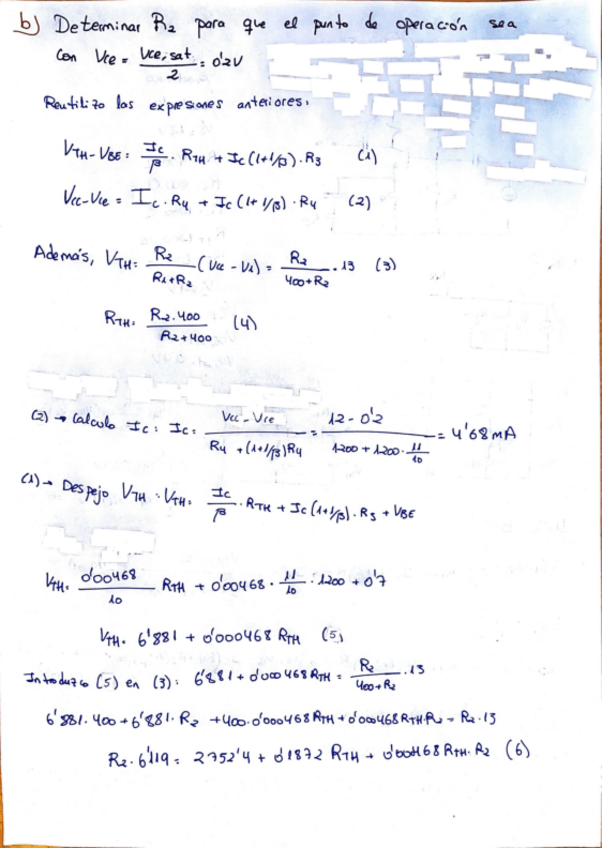 b) Determinar R2 para que el punto de operación sea
con Vce = Vce,sat / 2 = 0'2V
Reutilizo las expresiones anteriores:
VTH-VBE = Ic/β · RTH + Ic(1+1/β) · R3 (1)
Vcc-Vce = Ic · R4 + Ic(1+1/β) · R4 (2)
Además, VTH = R2/(R1+R2) (Vcc - V1) = R2/(400+R2) · 13 (3)
RTH = R2·400/(R2+400) (4)
(2) → Calculo Ic: Ic = (Vcc - Vce)/(R4 + (1+1/β)R4) = (12 - 0'2)/(1200 + 1200 · 11/10) = 4'68 mA
(1) → Despejo VTH: VTH = Ic/β · RTH + Ic(1+1/β) · R3 + VBE
VTH = 0'00468/10 RTH + 0'00468 · 11/10 · 1200 + 0'7
VTH = 6'881 + 0'000468 RTH (5)
Introduzco (5) en (3): 6'881 + 0'000468 RTH = R2/(400+R2) · 13
6'881·400 + 6'881·R2 + 400·0'000468 RTH + 0'000468 RTH·R2 = R2·13
R2·6'119 = 2752'4 + 0'1872 RTH + 0'000468 RTH·R2 (6)